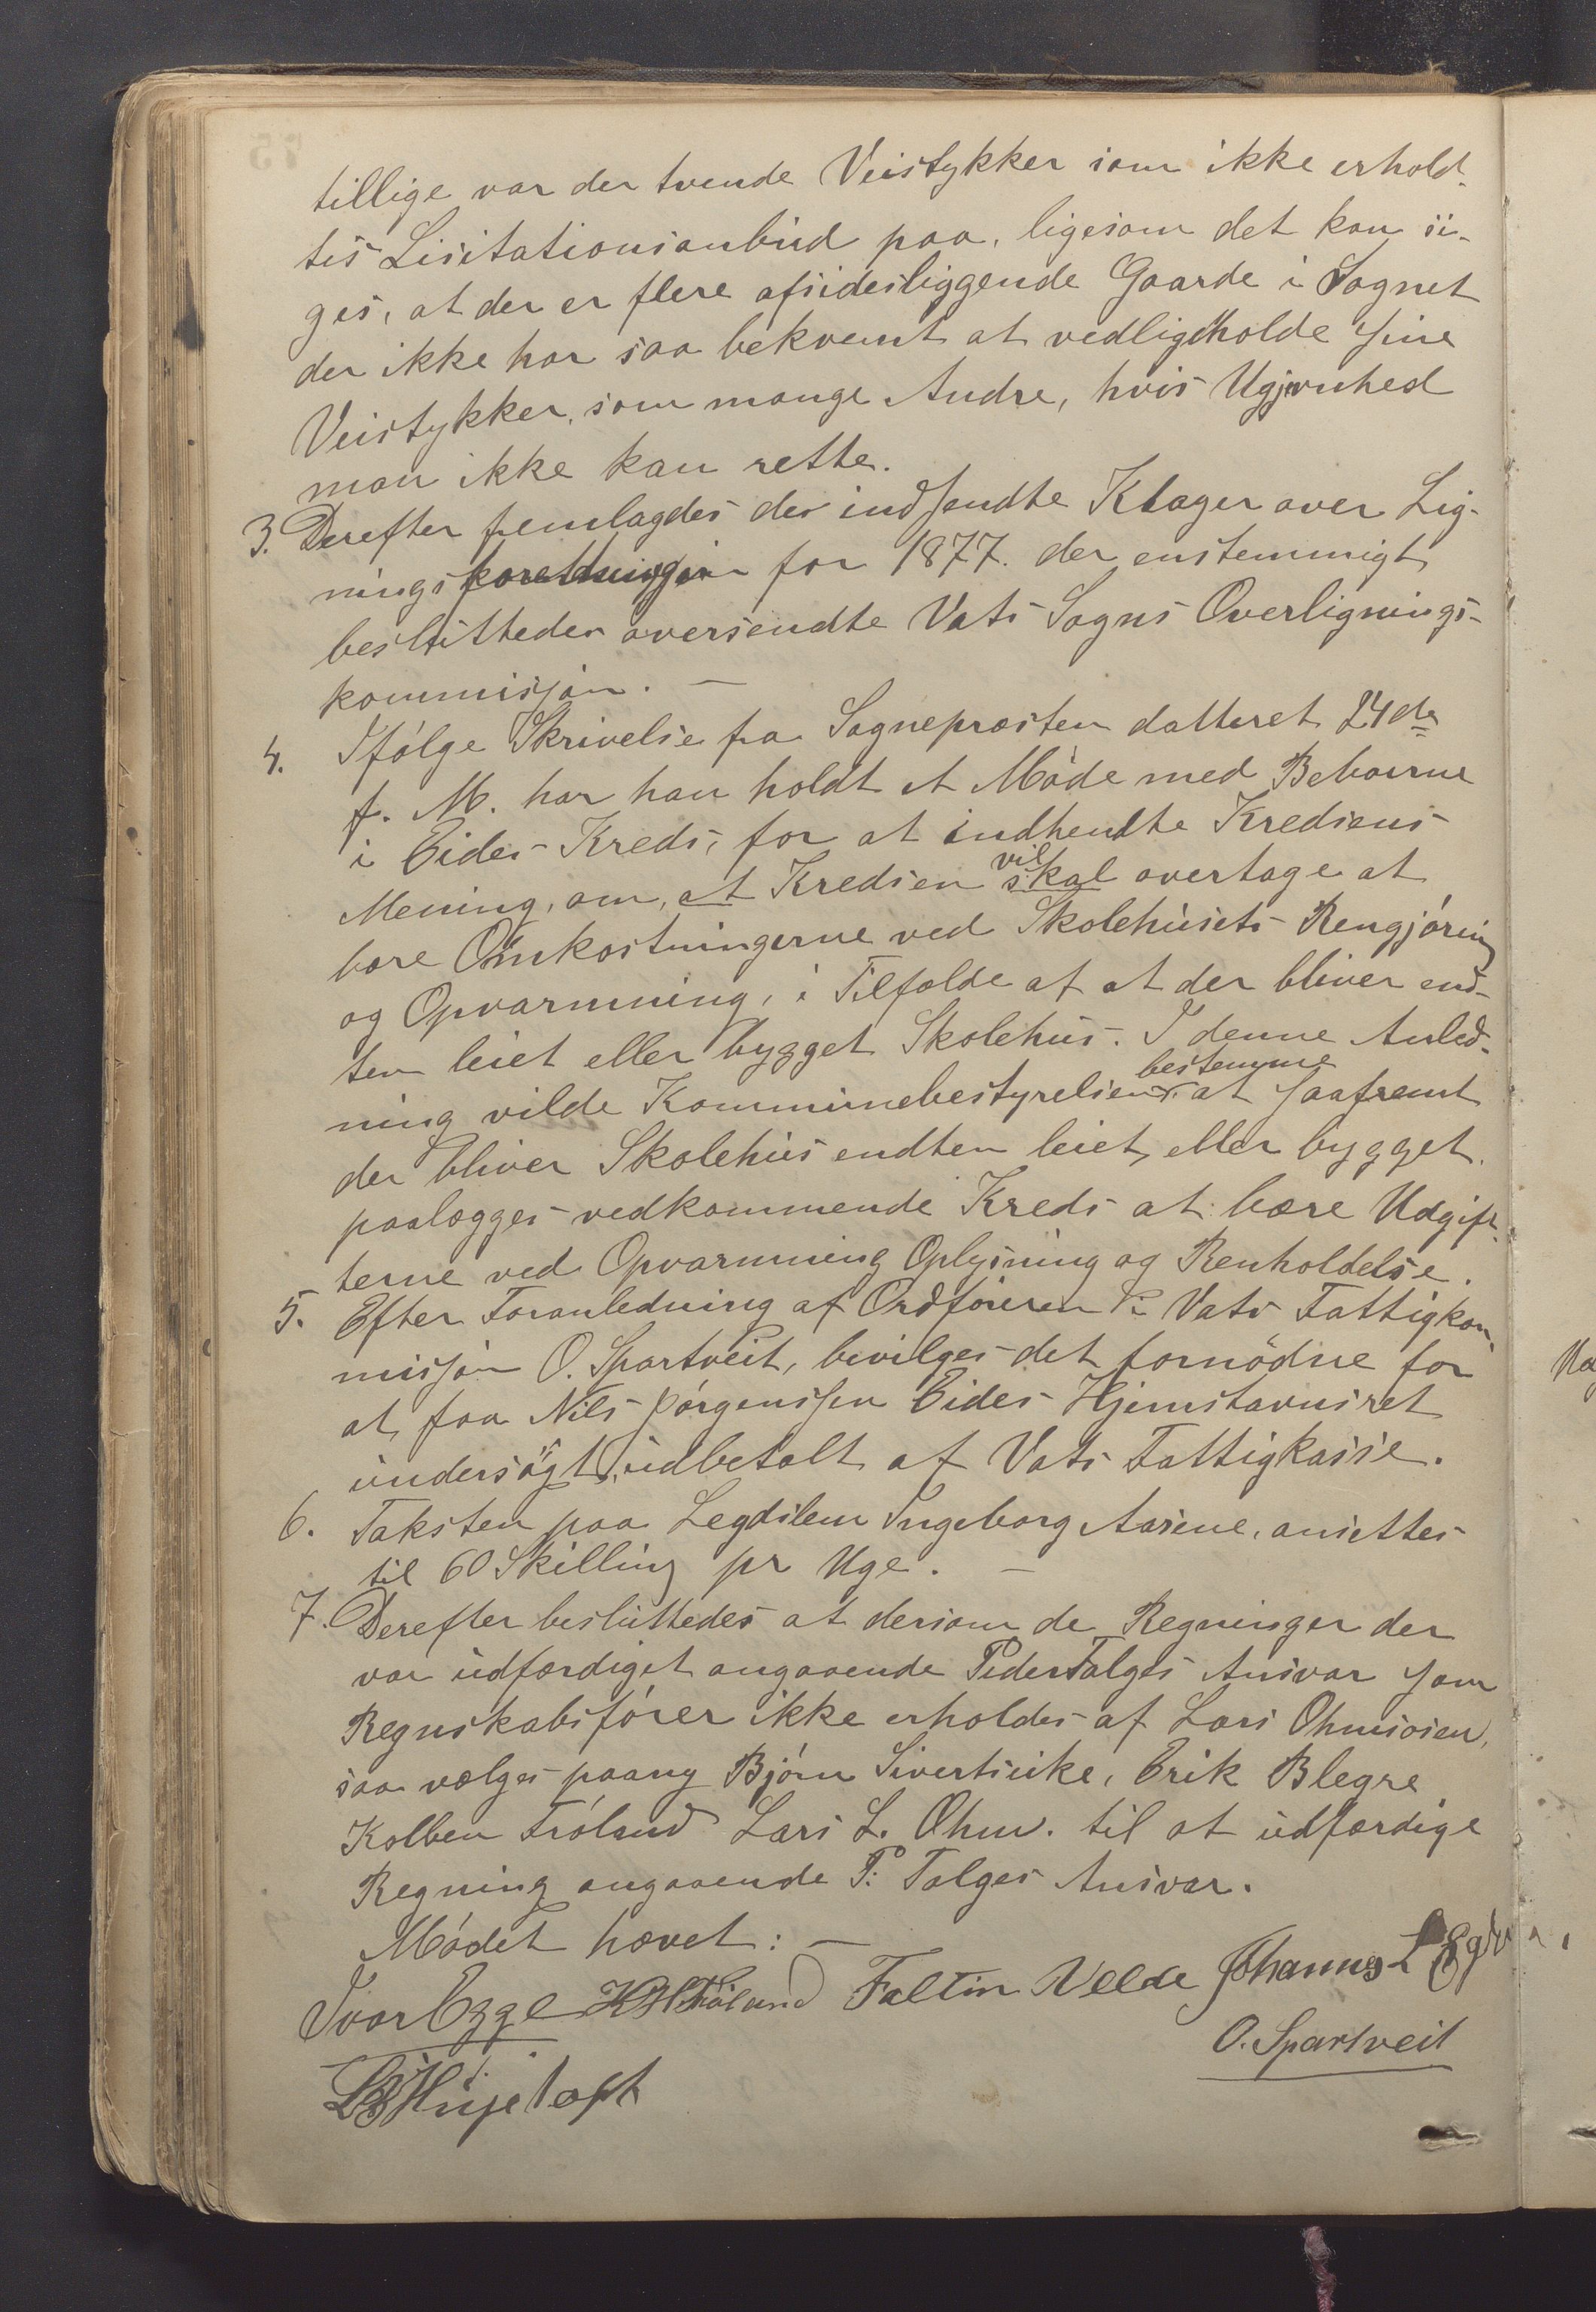 tillige var der tvende Veistykker som ikke erhold-
tes Lisitationsanbud paa, ligesom det kan si-
ges, at der er flere afsidesliggende Gaarde i Sognet
der ikke har saa bekvemt at vedligeholde sine
Veistykker, som mange Andre, hvis Ugjevnhed
man ikke kan rette.
3. Derefter fremlagdes der indsendte Klager over Lig-
nings for 1877. der enstemmigt
besluttedes oversendte Vats Sogns Overlignings-
kommissjon. —
4. Ifølge Skrivelse fra Sognepræsten datteret 24de
f. M. har han holdt et Møde med Beboerne
i Eides Kreds, for at indhendte Kredsens
Mening, om, at Kredsen vil skal overtage at
bære Omkostningerne ved Skolehusets Rengjøring
og Opvarmning, i Tilfælde af at der bliver end-
ten leiet eller bygget Skolehus. I denne Anled-
ning vilde Kommunebestyrelsen bestemme at saafremt
der bliver Skolehus endten leiet, eller bygget.
paalægges vedkommende Kreds at bære Udgif-
terne ved Opvarmning Oplysning og Renholdelse.
5. Efter Foranledning af Ordføreren i Vats Fattigkom-
missjon O. Spartveit, bevilges det fornødne for
at faa Nils Jørgenssen Eides Hjemstavnsret
undersøgt, udbetalt af Vats Fattigkasse.
6. Taksten paa Legdslem Ingeborg Aasene, ansettes
til 60 Skilling pr Uge. —
7. Derefter besluttedes at dersom de Regninger der
var udfærdiget angaaende Peder Falges Ansvar som
Regnskabsfører ikke erholdes af Lars Ohmsosen,
saa vælges paany Bjørn Sivertsvike, Erik Blegre
Kolben Frøland Lars L. Ohm. til at udfærdige
Regning angaaende P. Falges Ansvar.
Mødet hævet: —
Ivar Egge K H Frøland Faltin Velde Johannes L
O. Spartveit